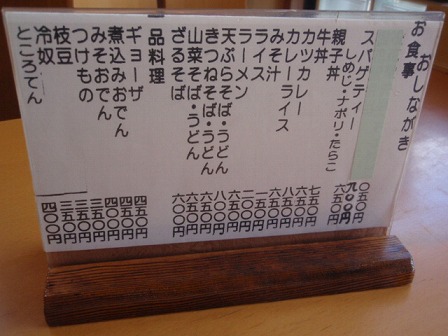 おしながき
お食事
スパゲティー
しめじ・ナポリ・たらこ 六五〇円
親子丼 七五〇円
牛丼 六五〇円
カツカレー 八五〇円
カレーライス 六五〇円
みそ汁 一五〇円
ライス 二〇〇円
ラーメン 六〇〇円
天ぷらそば・うどん 八〇〇円
きつねそば・うどん 六五〇円
山菜そば・うどん 六五〇円
ざるそば 六〇〇円
品料理
ギョーザ
煮込みおでん
みそおでん
つけもの
枝豆 三五〇円
冷奴
ところてん 四〇〇円